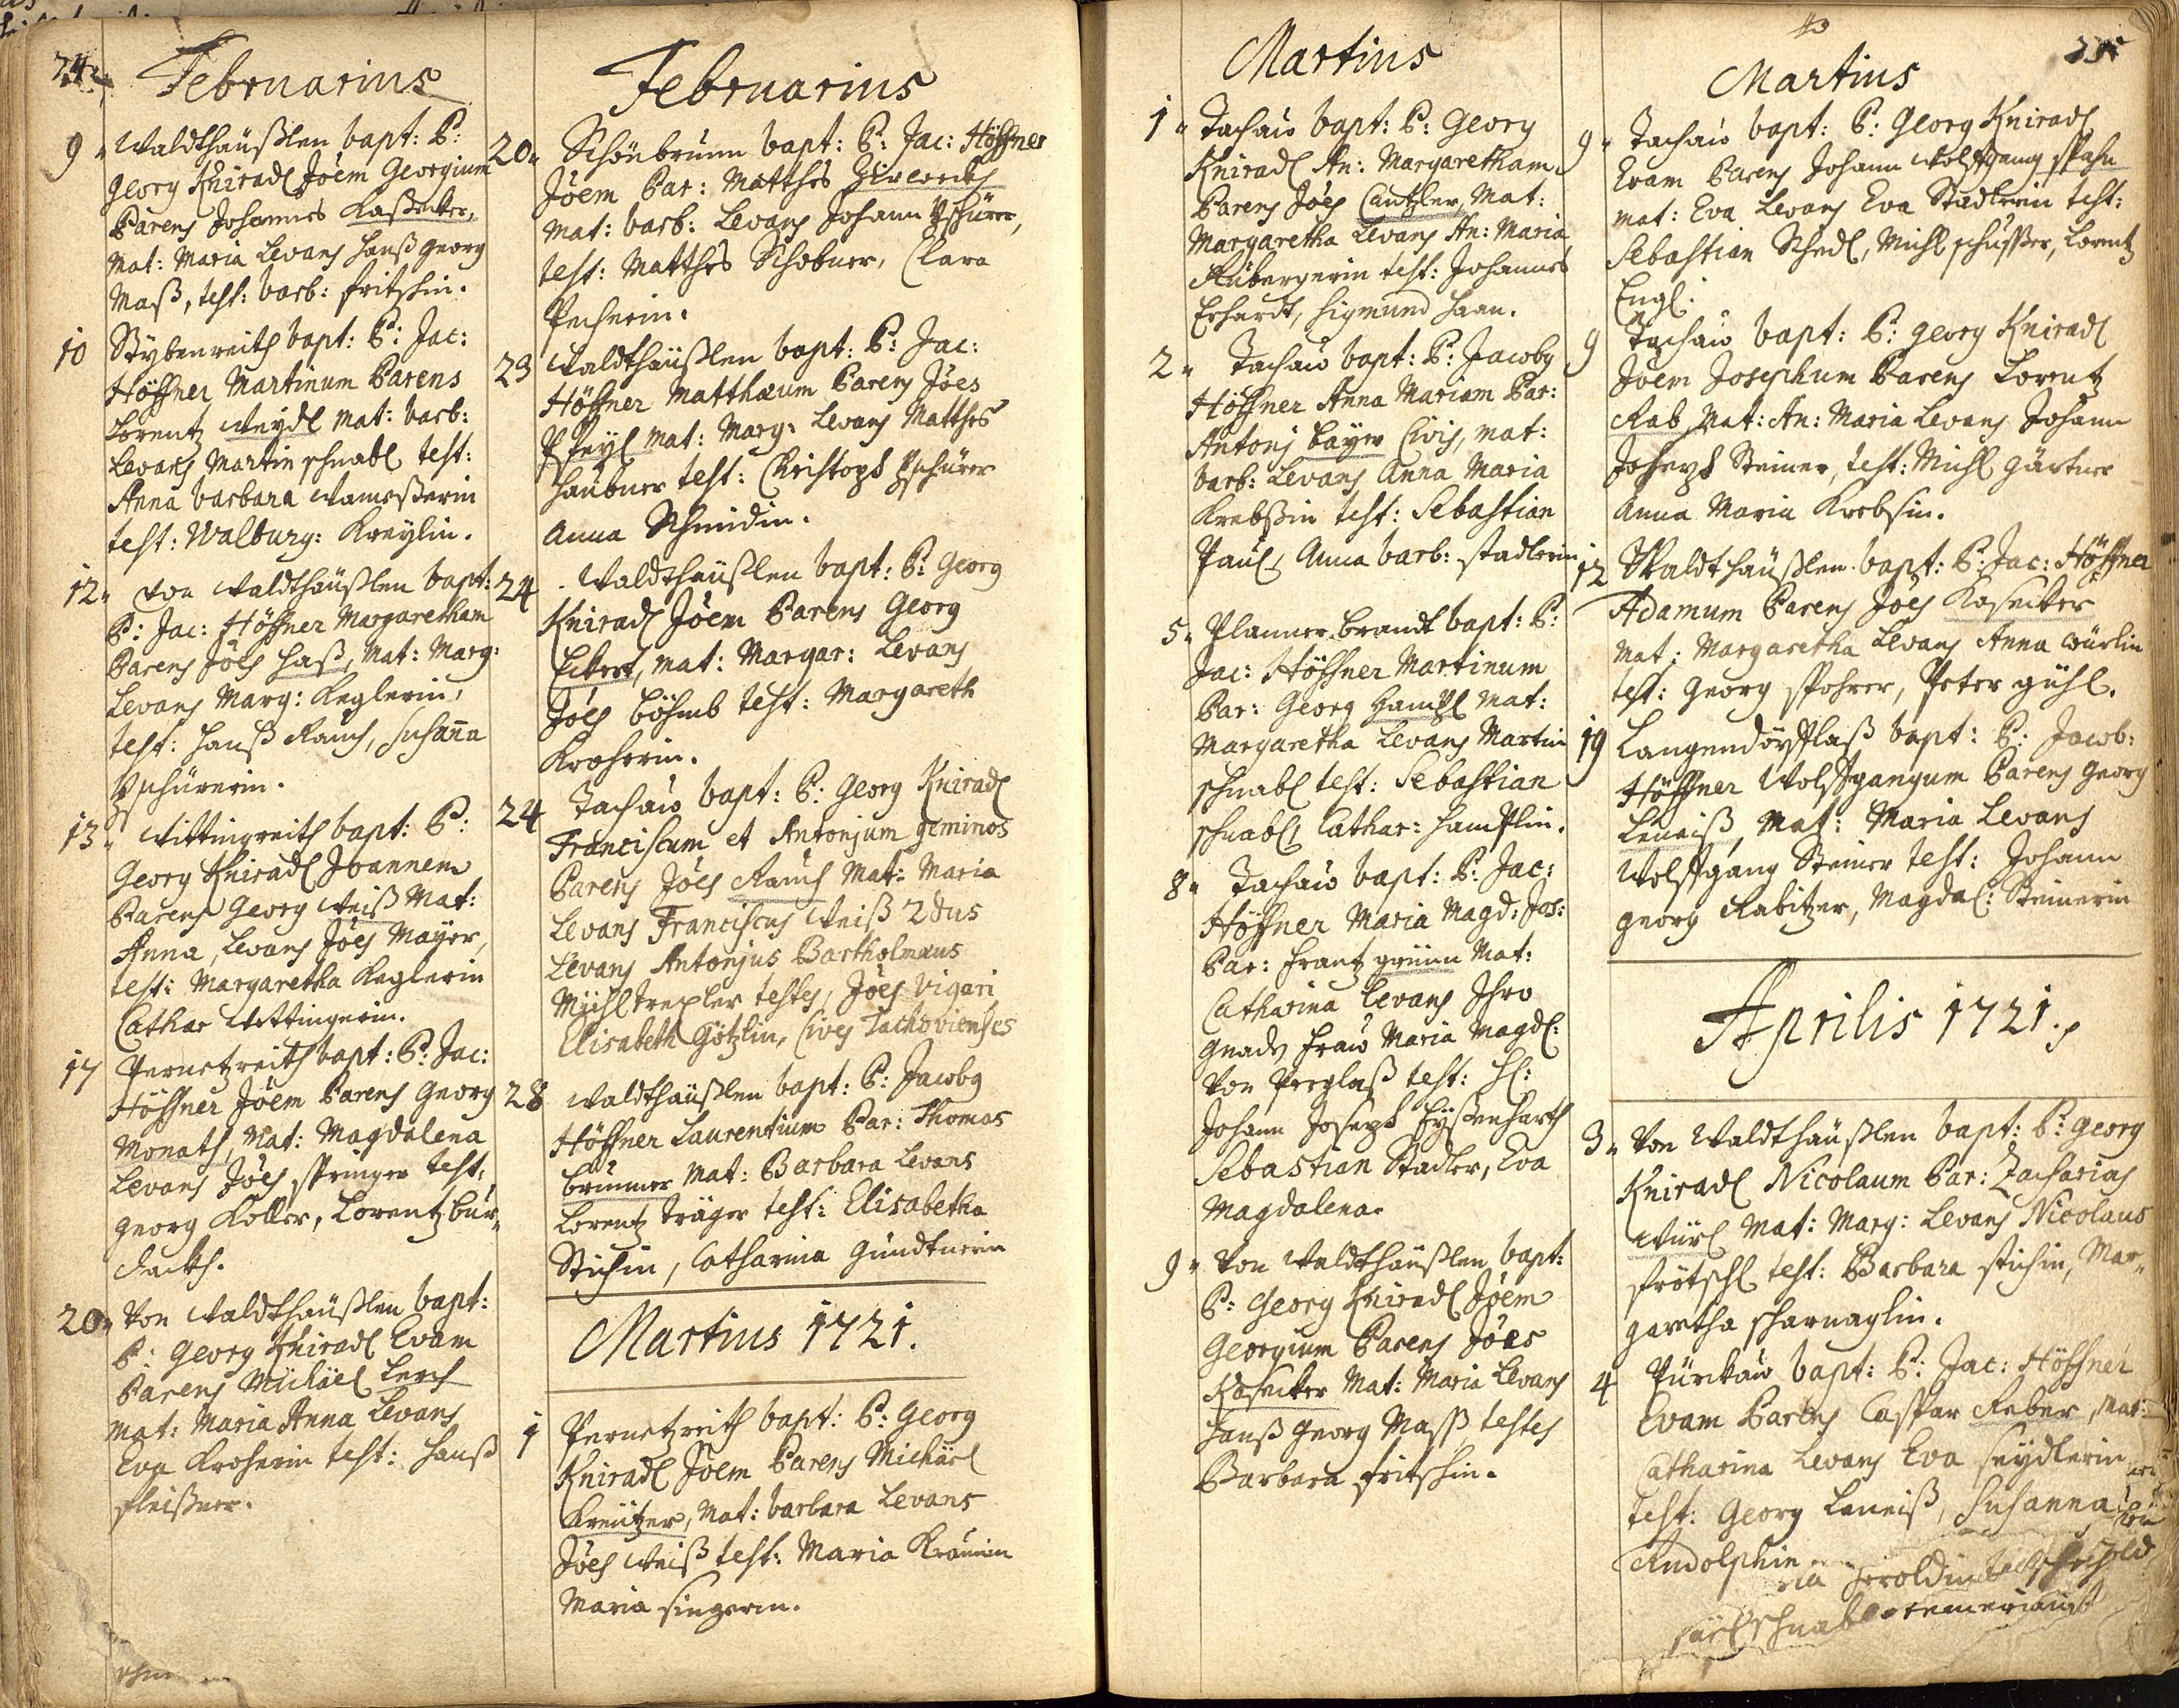 Februarius
9 Waldthäußlen bapt: P:
Georg Kniradl Jõem Georgium
Parens Johannes Kaßecker,
Mat: Maria Levans Hanß Georg
Maß, test: barb: fritschin.
10 Stybenreith bapt: P: Jac:
Höffner Martinum Parens
Lorentz Weydl Mat: barb:
Levans Martin schnabl test:
Anna barbara
test: Walburg: Kreylin.
12 von Waldthäußlen bapt:
P: Jac: Höffner Margaretham
Parens Jões Haß, Mat: Marg:
Levans Marg: Keglerin,
test: Hanß Rauch, Susanna
Pschürerin.
13 Wittingreith bapt: P:
Georg Kniradl Joannem
Parens Georg Weiß Mat:
Anna, Levans Jões Mayer,
test: Margaretha Keglerin
Cathar Wettingerin.
17 Pernetzreith bapt: P: Jac:
Höffner Jõem Parens Georg
Monath, Mat: Magdalena
Levans Jões springer test:
Georg Koller, Lorentz bur-
20 Von Waldthäußlen bapt:
P: Georg Kniradl Evam
Parens Michäel Lerch
Mat: Maria Anna Levans
Eva Kroherin test: Hanß
fleißner.
Februarius
20 Schönbrunn bapt: P: Jac: Höffner
Jõem Par: Matthes
Mat: barb: Levans Johann Pschürer,
test: Matthes Schobner, Clara
Pecherin.
23 Waldthäußlen bapt: P: Jac:
Höffner Matthæum Parens Jões
Pfeyl Mat: Marg: Levans Matthes
Haubner test: Christoph Pschürer
Anna Schmidin.
24 Waldthäußlen bapt: P: Georg
Kniradl Jõem Parens Georg
Eckert, Mat: Margar: Levans
Jões Böhmb test: Margareth
Kroherin.
24 Tachau bapt: P: Georg Kniradl
Franciscum et Antonjum geminos
Parens Jões Rauch Mat: Maria
Levans Franciscus Weiß 2dus
Levans Antonjus Bartholmæus
Mühltrexler testes, Jões Vigari
Elisabeth Götzlin, Cives Tachovienses
28 Waldthäußlen bapt: P: Jacoby
Höffner Laurentium Par: Thomas
Brunner Mat: Barbara Levans
Lorentz Träger test: Elisabetha
Stichin, Catharina Gundtnerin
Martius 1721.
1 Pernetzreith bapt: P: Georg
Kniradl Jõem Parens Michäel
Kreützer, Mat: barbara Levans
Jões Weiß test: Maria Kraunin
Maria singerin.
Martius
1 Tachau bapt: P: Georg
Kniradl An: Margaretham
Parens Jões Cantzler, Mat:
Margaretha Levans An: Maria
Rübergerin test: Johannes
Erhardt, Sigmund Haan.
2 Tachau bapt: P: Jacoby
Höffner Anna Mariam Par:
Antonj Bayer Civis, Mat:
barb: Levans Anna Maria
Krebßin test: Sebastian
Paul, Anna barb: stadlerin
5 Planner brandt bapt: P:
Jac: Höffner Martinum
Par: Georg Hampl Mat:
Margaretha Levans Martin
schnabl test: Sebastian
schnabl, Cathar: Hamplin.
8 Tachau bapt: P: Jac:
Höffner Maria Magd: Jos:
Par: Frantz grünn Mat:
Catharina Levans Ihro
Gnad Frau Maria Magdl:
Von test: H:
Johann Joseph Eyßenharth
Sebastian Stadler, Eva
Magdalena.
9 Von Waldthäußlen bapt:
P: Georg Kniradl Jõem
Georgium Parens Jões
Kaßecker Mat: Maria Levans
Hanß Georg Maß testes
Barbara fritschin.
Martius
9 Tachau bapt: P: Georg Kniradl
Evam Parens Johann Wolffgang spahn
Mat: Eva Levans Eva Stadlerin test:
Sebastian Schedl, Michl schusser, Lorentz
Engl.
9 Tachau bapt: P: Georg Kniradl
Jõem Josephum Parens Lorentz
Rab Mat: An: Maria Levans Johann
Joseph Steiner, test: Michl Gärtner
Anna Maria Krebsin.
12 Waldthäußlen bapt: P: Jac: Höffner
Adamum Parens Jões Kaßecker
Mat: Margaretha Levans Anna Würlin
test: Georg spohrer, Peter gühl.
19 Langendörflaß bapt: P: Jacob:
Höffner Wolffgangum Parens Georg
Leneiß, Mat: Maria Levans
Wolffgang Steiner test: Johann
Georg Rabitzer, Magdal: Steinerin
Aprilis 1721.
3 Von Waldthäußlen bapt: P: Georg
Kniradl Nicolaum Par: Zacharias
Würl Mat: Marg: Levans Nicolaus
frötschl test: Barbara stichin, Mar-
garetha scharnaglin.
4 Purckau bapt: P: Jac: Höffner
Evam Parens Caspar Reber, Mat:
Catharina Levans Eva seydlerin
test: Georg Leneiß, Susanna
Rudolphin